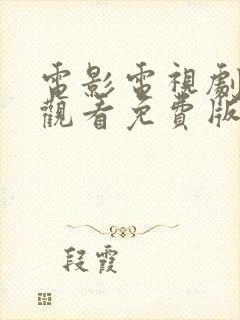 電影電視劇
觀看免費版
段霞